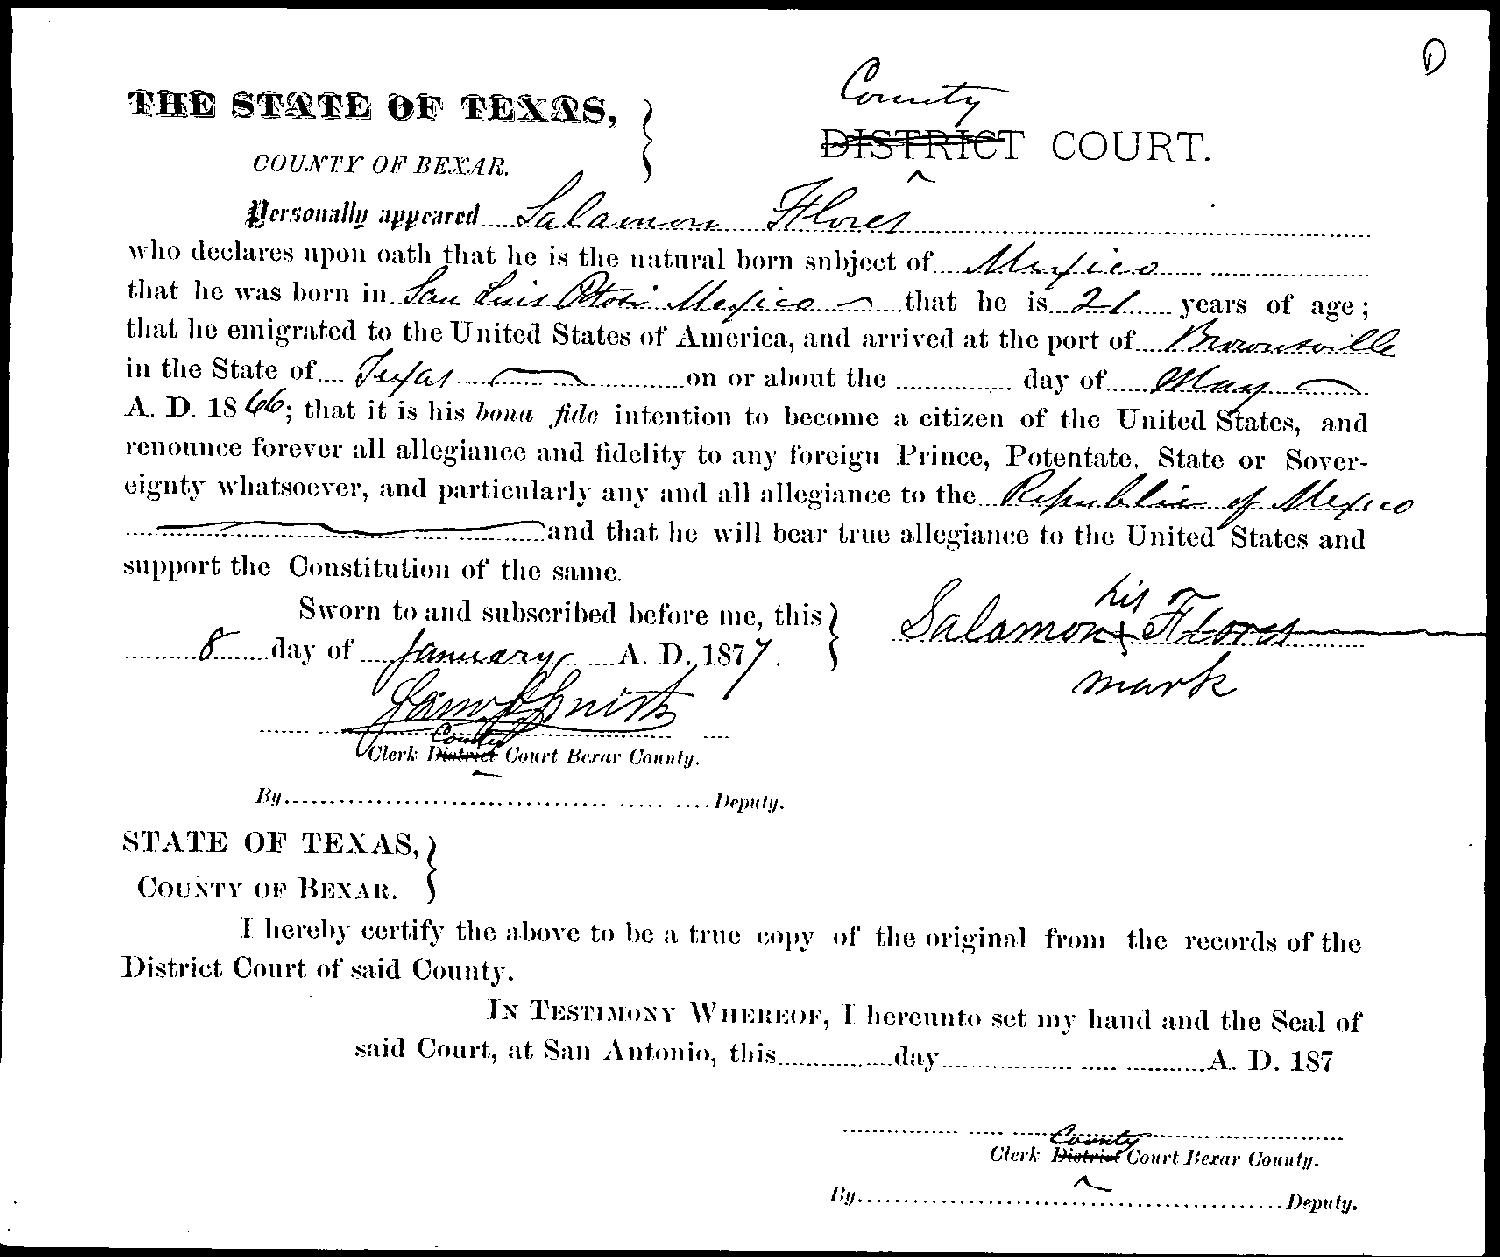 THE STATE OF TEXAS,
COUNTY OF BEXAR.
County
DISTRICT COURT.
Personally appeared Salamon Flores
who declares upon oath that he is the natural born subject of Mexico
that he was born in San Luis Potosi Mexico that he is 21 years of age;
that he emigrated to the United States of America, and arrived at the port of Brownsville
in the State of Texas on or about the day of May
A. D. 1866; that it is his bona fide intention to become a citizen of the United States, and
renounce forever all allegiance and fidelity to any foreign Prince, Potentate, State or Sover-
eignty whatsoever, and particularly any and all allegiance to the Republic of Mexico
and that he will bear true allegiance to the United States and
support the Constitution of the same.
Sworn to and subscribed before me, this
8 day of January A. D. 1877.
his
Salamon x Flores
mark
Smith
County
Clerk District Court Bexar County.
By Deputy.
STATE OF TEXAS,
COUNTY OF BEXAR.
I hereby certify the above to be a true copy of the original from the records of the
District Court of said County.
IN TESTIMONY WHEREOF, I hereunto set my hand and the Seal of
said Court, at San Antonio, this day A. D. 187
County
Clerk District Court Bexar County.
By Deputy.